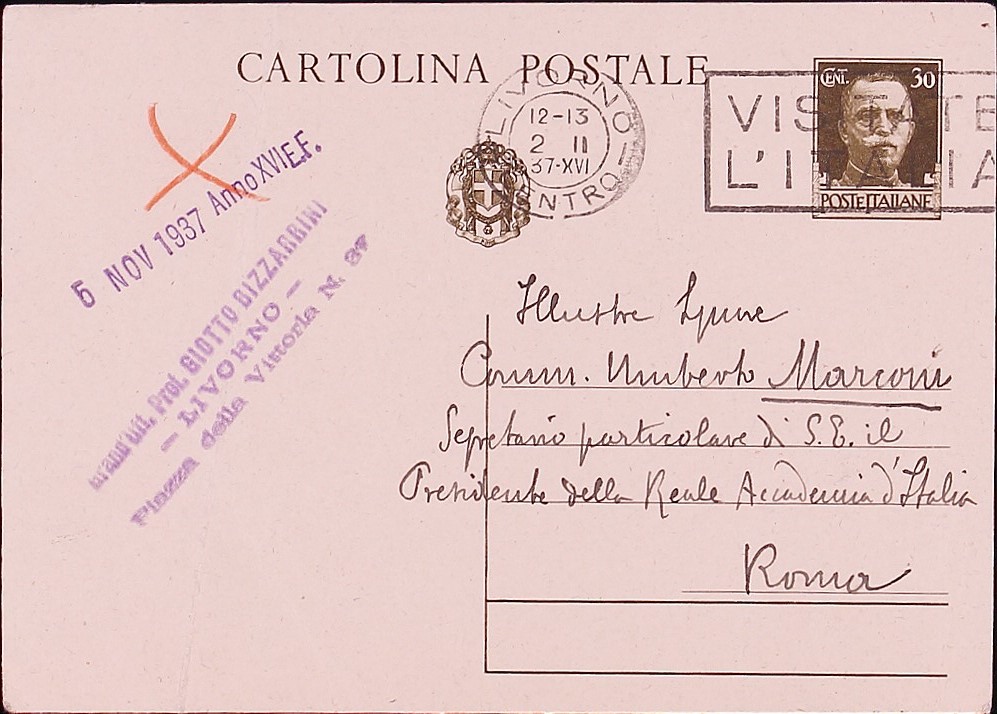 CARTOLINA POSTALE
LIVORNO
12-13
2 II
37-XVI
CENTRO
VISITATE
L'ITALIA
CENT. 30
POSTE ITALIANE
5 NOV 1937 Anno XVI E.F.
Grand'Uff. Prof. GIOTTO DIZZARRINI
— LIVORNO —
Piazza della Vittoria N. 37
Illustre Signore
Comm. Umberto Marconi
Segretario particolare di S.E. il
Presidente della Reale Accademia d'Italia
Roma